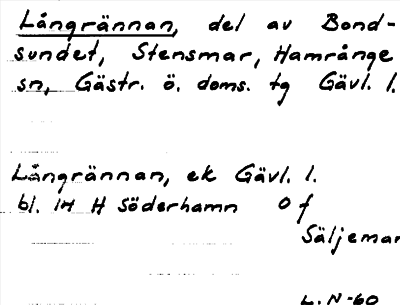 Långrännan, del av Bond-
sundet, Stensmar, Hamrånge
sn, Gästr. ö. doms. tg Gävl. l.
Långrännan, ek Gävl. l.
bl. 14 H Söderhamn O f
Säljemar
L. N-60